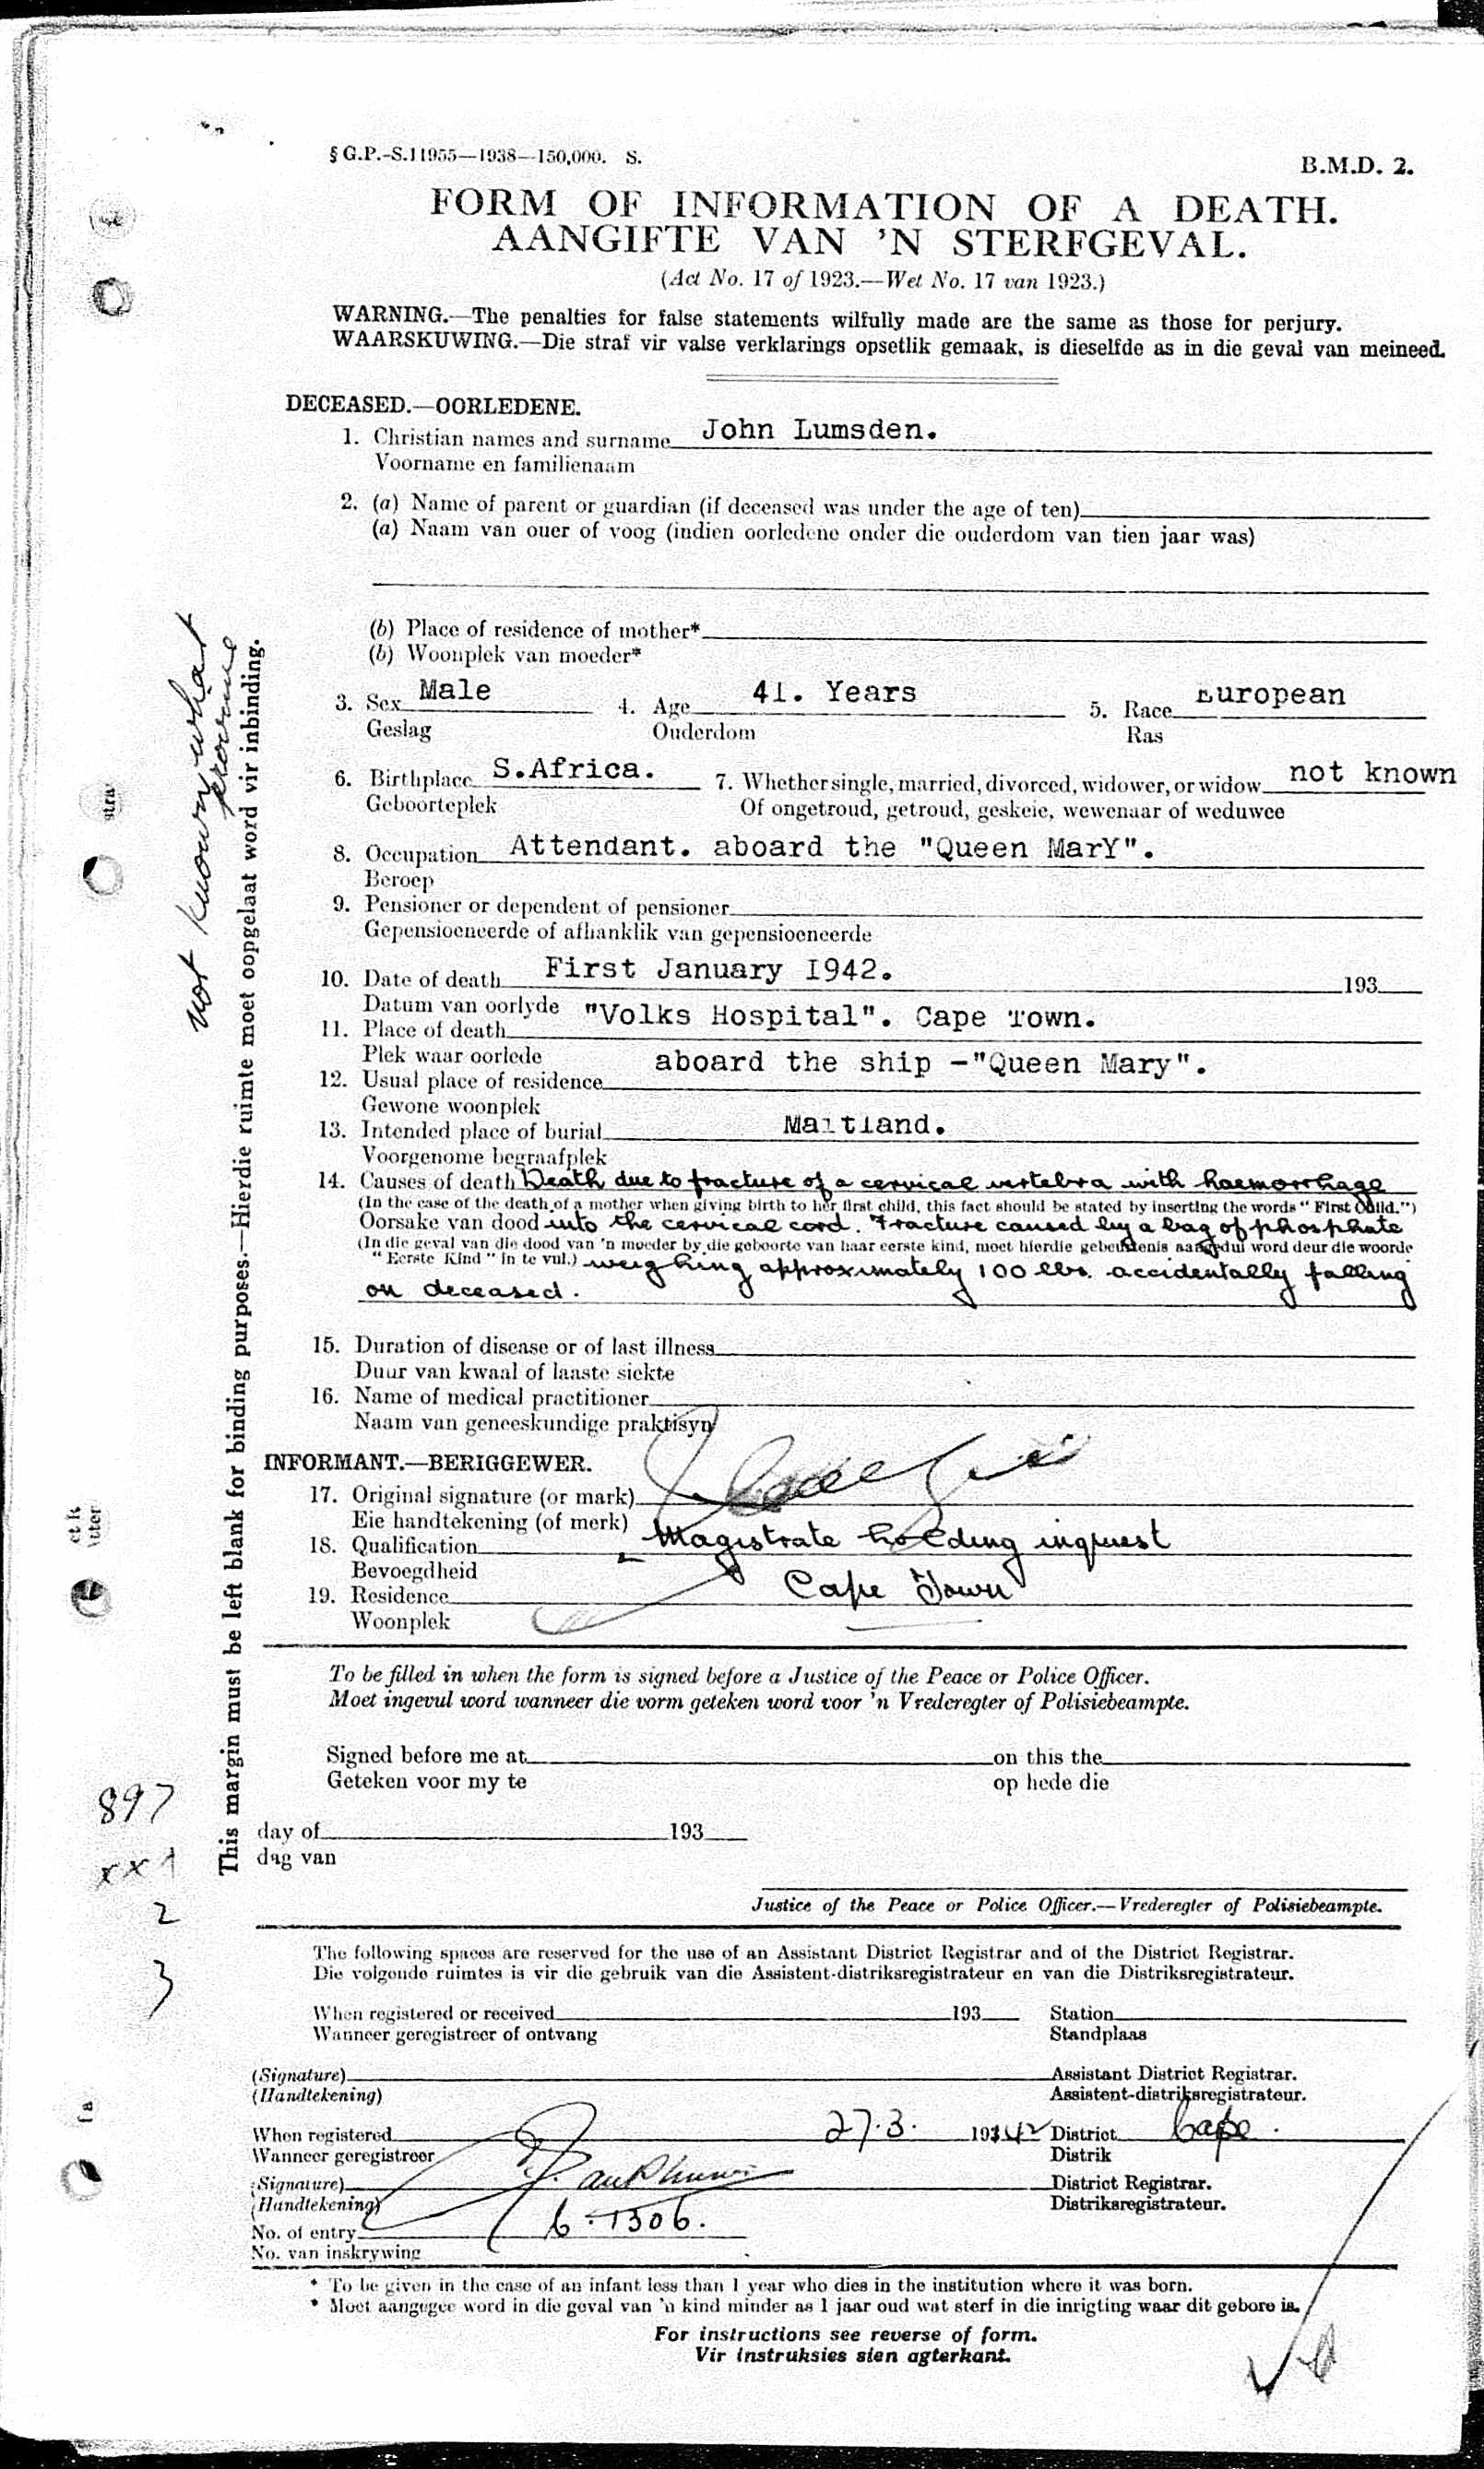 § G.P.-S.11955—1938—150,000. S.
B.M.D. 2.
FORM OF INFORMATION OF A DEATH.
AANGIFTE VAN 'N STERFGEVAL.
(Act No. 17 of 1923.—Wet No. 17 van 1923.)
WARNING.—The penalties for false statements wilfully made are the same as those for perjury.
WAARSKUWING.—Die straf vir valse verklarings opsetlik gemaak, is dieselfde as in die geval van meineed.
DECEASED.—OORLEDENE.
1. Christian names and surname John Lumsden.
Voorname en familienaam
2. (a) Name of parent or guardian (if deceased was under the age of ten)
(a) Naam van ouer of voog (indien oorledene onder die ouderdom van tien jaar was)
(b) Place of residence of mother*
(b) Woonplek van moeder*
3. Sex Male 4. Age 41. Years 5. Race European
Geslag Ouderdom Ras
6. Birthplace S.Africa. 7. Whether single, married, divorced, widower, or widow not known
Geboorteplek Of ongetroud, getroud, geskeie, wewenaar of weduwee
8. Occupation Attendant. aboard the "Queen MarY".
Beroep
9. Pensioner or dependent of pensioner
Gepensioeneerde of afhanklik van gepensioeneerde
10. Date of death First January I942. 193
Datum van oorlyde
11. Place of death "Volks Hospital". Cape Town.
Plek waar oorlede
12. Usual place of residence aboard the ship -"Queen Mary".
Gewone woonplek
13. Intended place of burial Maitland.
Voorgenome begraafplek
14. Causes of death Death due to fracture of a cervical vertebra with haemorrhage
(In the case of the death of a mother when giving birth to her first child, this fact should be stated by inserting the words "First Child.")
Oorsake van dood into the cervical cord. Fracture caused by a bag of phosphate
(In die geval van die dood van 'n moeder by die geboorte van haar eerste kind, moet hierdie gebeurtenis aangedui word deur die woorde
"Eerste Kind" in te vul.) weighing approximately 100 lbs. accidentally falling
on deceased.
15. Duration of disease or of last illness
Duur van kwaal of laaste siekte
16. Name of medical practitioner
Naam van geneeskundige praktisyn
INFORMANT.—BERIGGEWER.
17. Original signature (or mark)
Eie handtekening (of merk)
18. Qualification Magistrate holding inquest
Bevoegdheid
19. Residence Cape Town
Woonplek
To be filled in when the form is signed before a Justice of the Peace or Police Officer.
Moet ingevul word wanneer die vorm geteken word voor 'n Vrederegter of Polisiebeampte.
Signed before me at on this the
Geteken voor my te op hede die
day of 193
dag van
Justice of the Peace or Police Officer.—Vrederegter of Polisiebeampte.
The following spaces are reserved for the use of an Assistant District Registrar and of the District Registrar.
Die volgende ruimtes is vir die gebruik van die Assistent-distriksregistrateur en van die Distriksregistrateur.
When registered or received 193 Station
Wanneer geregistreer of ontvang Standplaas
(Signature) Assistant District Registrar.
(Handtekening) Assistent-distriksregistrateur.
When registered 27.3. 1942 District Cape.
Wanneer geregistreer Distrik
(Signature) District Registrar.
(Handtekening) Distriksregistrateur.
No. of entry 6.1306.
No. van inskrywing
* To be given in the case of an infant less than 1 year who dies in the institution where it was born.
* Moet aangegee word in die geval van 'n kind minder as 1 jaar oud wat sterf in die inrigting waar dit gebore is.
For instructions see reverse of form.
Vir instruksies sien agterkant.
This margin must be left blank for binding purposes.—Hierdie ruimte moet oopgelaat word vir inbinding.
not known what
province
897
xx1
2
3